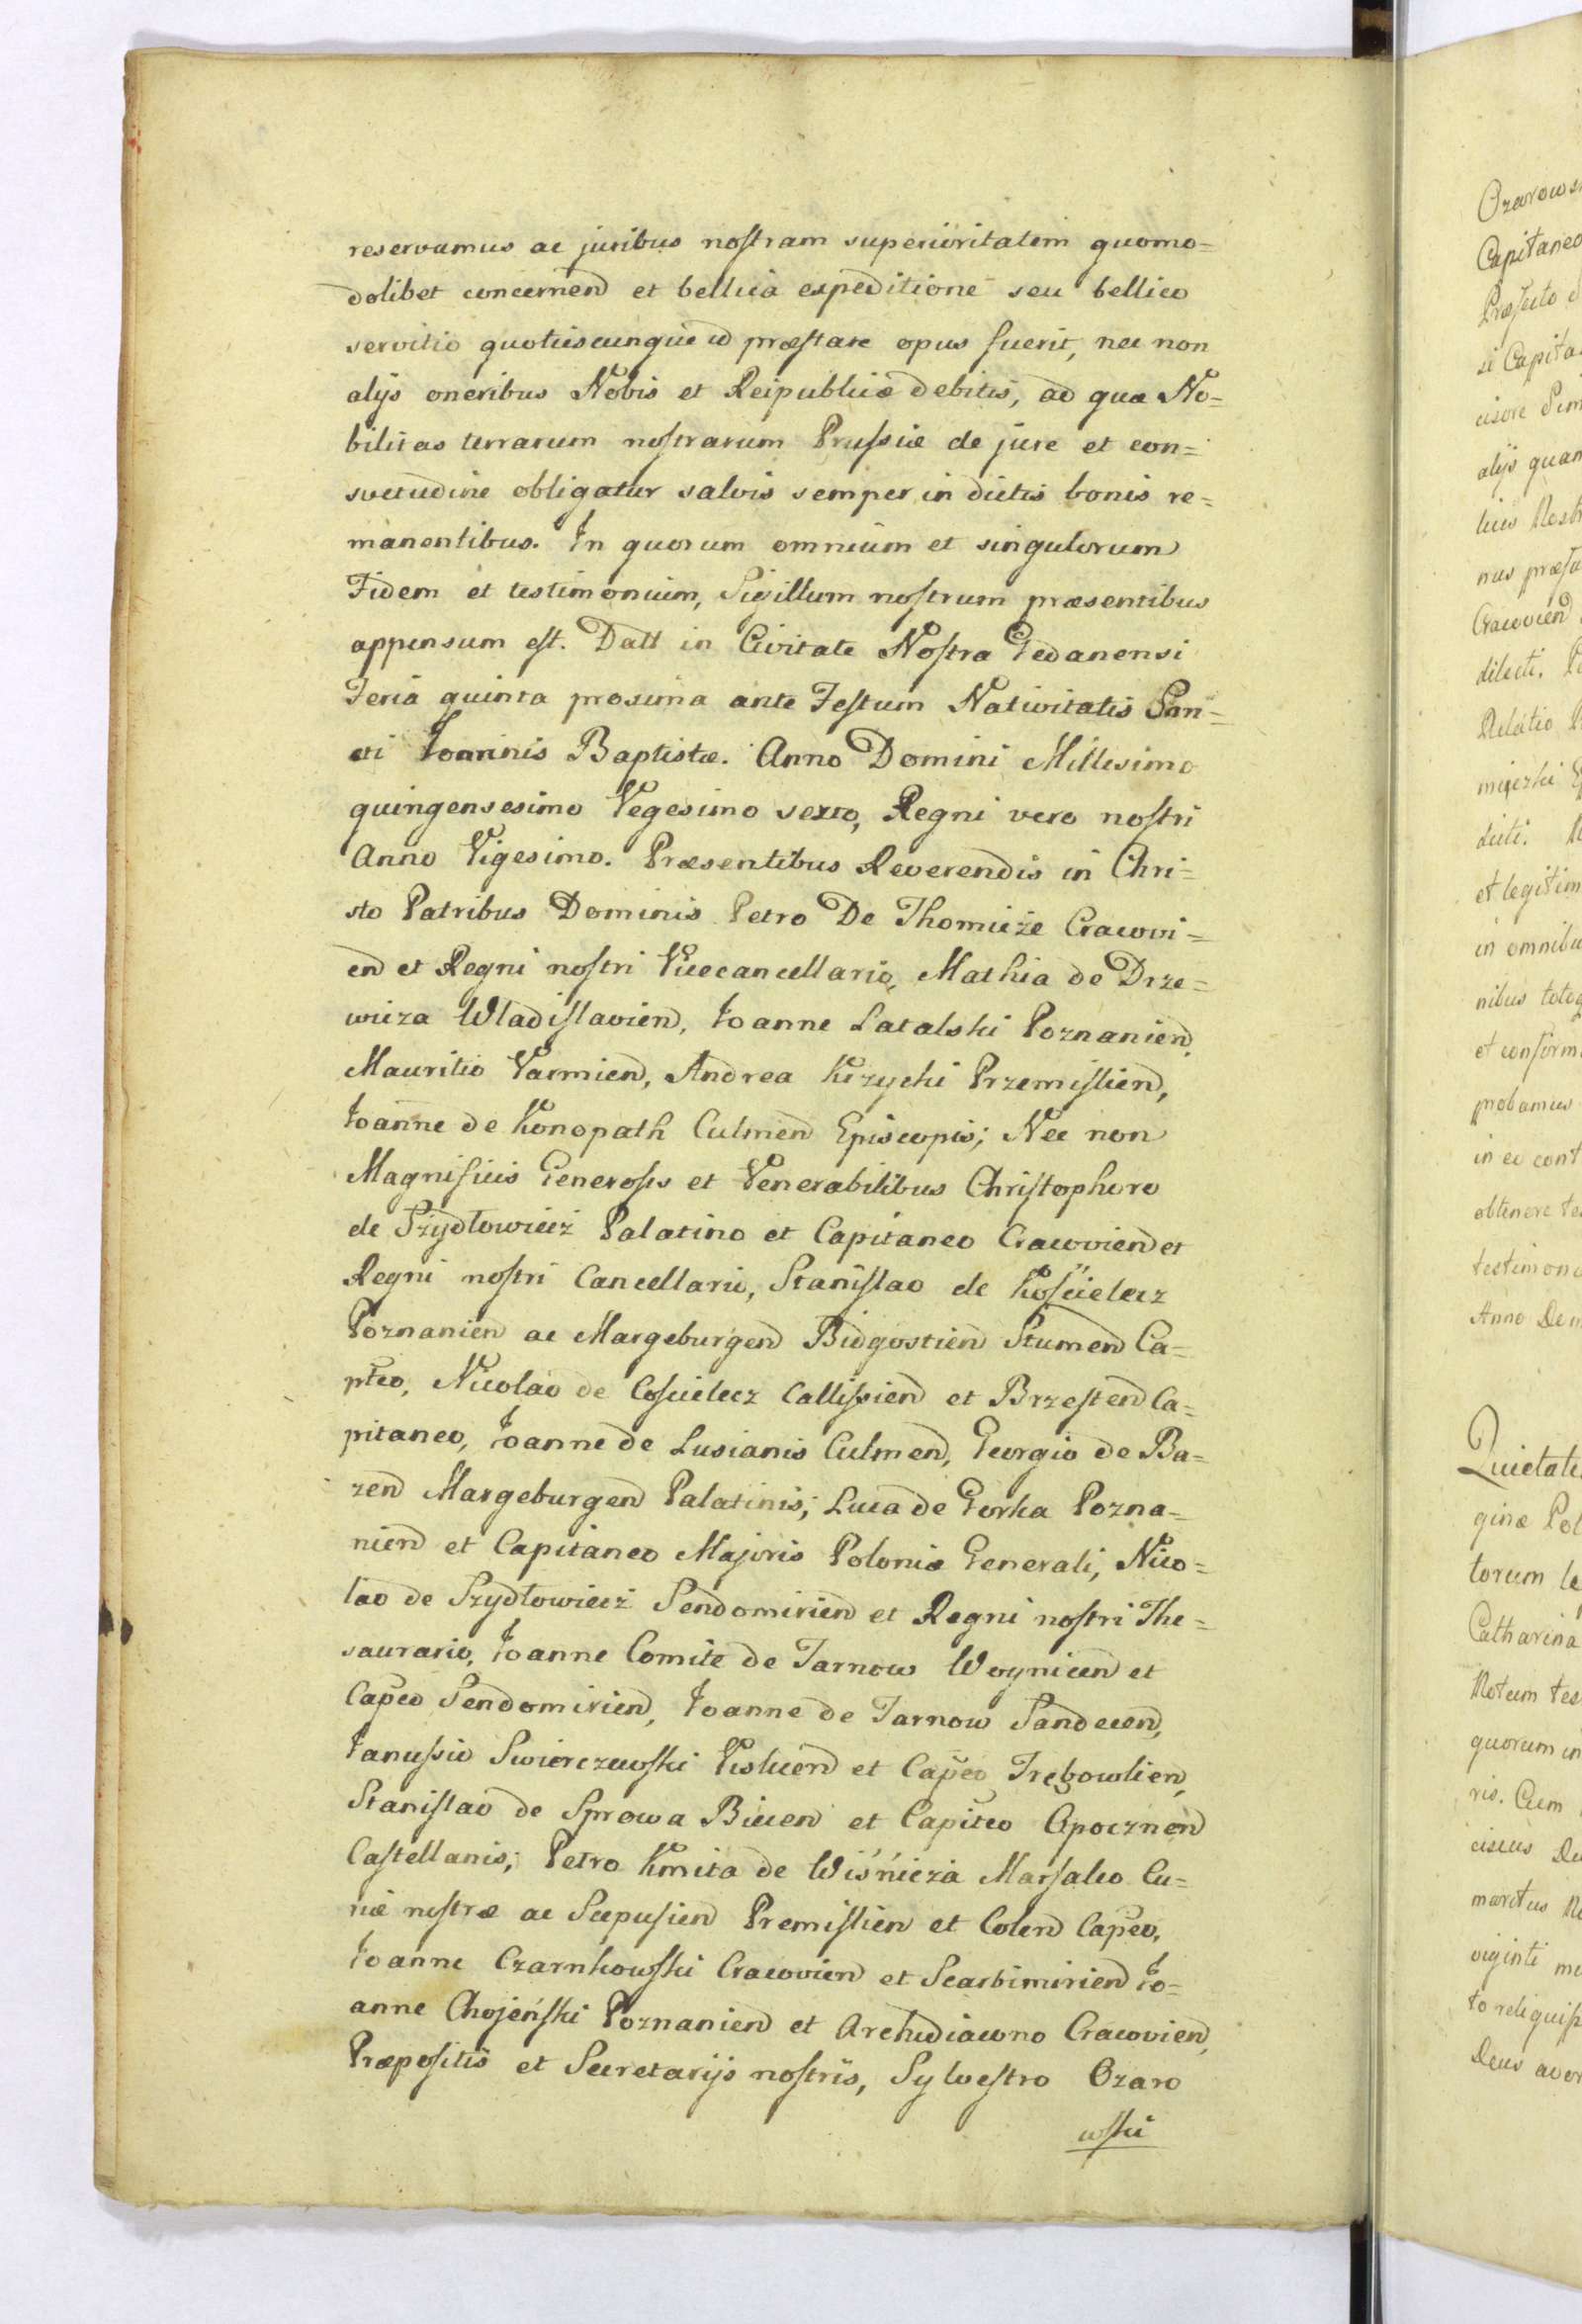 reservamus ac juribus nostram superioritatem quomo=
dolibet concernend et bellica expeditione seu bellico
servitio quotiescunque id præstare opus fuerit, nec non
alijs oneribus Nobis et Reipublicæ debitis, ad quæ No=
bilitas terrarum nostrarum Prussiæ de jure et con=
svetudine obligatur salvis semper in dictis bonis re=
manentibus. In quorum omnium et singulorum
Fidem et testimonium, Sigillum nostrum præsentibus
appensum est. Datt in Civitate Nostra Gedanensi
Feria quinta proxima ante Festum Nativitatis San=
cti Ioannis Baptistæ. Anno Domini Millesimo
quingensesimo Vegesimo sexto, Regni vero nostri
Anno Vigesimo. Præsentibus Reverendis in Chri=
sto Patribus Dominis Petro De Thomicze Cracovi=
end et Regni nostri Vicecancellario, Mathia de Drze=
wicza Wladislaviend, Ioanne Latalski Poznaniend,
Mauritio Varmiend, Andrea Krzycki Przemisliend,
Ioanne de Konopath Culmend Episcopis; Nec non
Magnificis Generosis et Venerabilibus Christophoro
de Szydłowiecz Palatino et Capitaneo Cracoviend et
Regni nostri Cancellario, Stanislao de Kościelecz
Poznanien ac Margeburgend Bidgostiend Stumend Ca=
pteo, Nicolao de Coscielecz Callissiend et Brzestend Ca=
pitaneo, Ioanne de Lusianis Culmend, Georgio de Ba=
zend Margeburgend Palatinis; Luca de Gorka Pozna=
niend et Capitaneo Majoris Poloniæ Generali, Nico=
lao de Szydłowiecz Sendomiriend et Regni nostri The=
saurario, Ioanne Comite de Tarnow Woynicend et
Capeo Sendomiriend, Ioanne de Tarnow Sandecend,
Ianussio Swierczewski Visliend et Capeo Trębowlien,
Stanislao de Sprowa Biecend et Capiteo Opocznend
Castellanis; Petro Kmita de Wiśnicza Marsalco Cu=
riæ nostræ ac Scepusiend Premisliend et Colend Capeo,
Ioanne Czarnkowski Cracoviend et Scarbimiriend Io=
anne Chojeński Poznaniend et Archidiacono Cracoviend,
Præpositis et Secretarijs nostris, Sylvestro Ozaro
wski
Ozarows
Capitaneo
si Capita
alijs quam
Cracoviend
dilecti.
Relatio
dicti.
et legitim
in omnibu
nibus totoq
et confirm
probamus
in ea cont
obtinere
testimoni
Anno Dom
Quietat
ginæ Pol
torum
Catharina
Notum tes
quorum in
ris. Cum
ciscus
maritus
viginti
to reliquiss
Deus aver